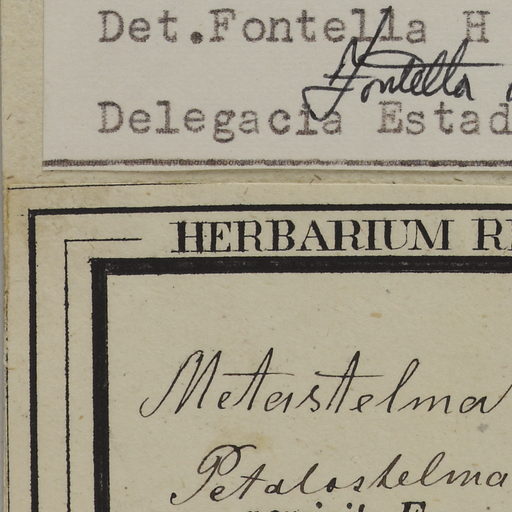 Det.Fontella H
Fontella
Delegacia Estad
HERBARIUM R
Metastelma
Petalostelma